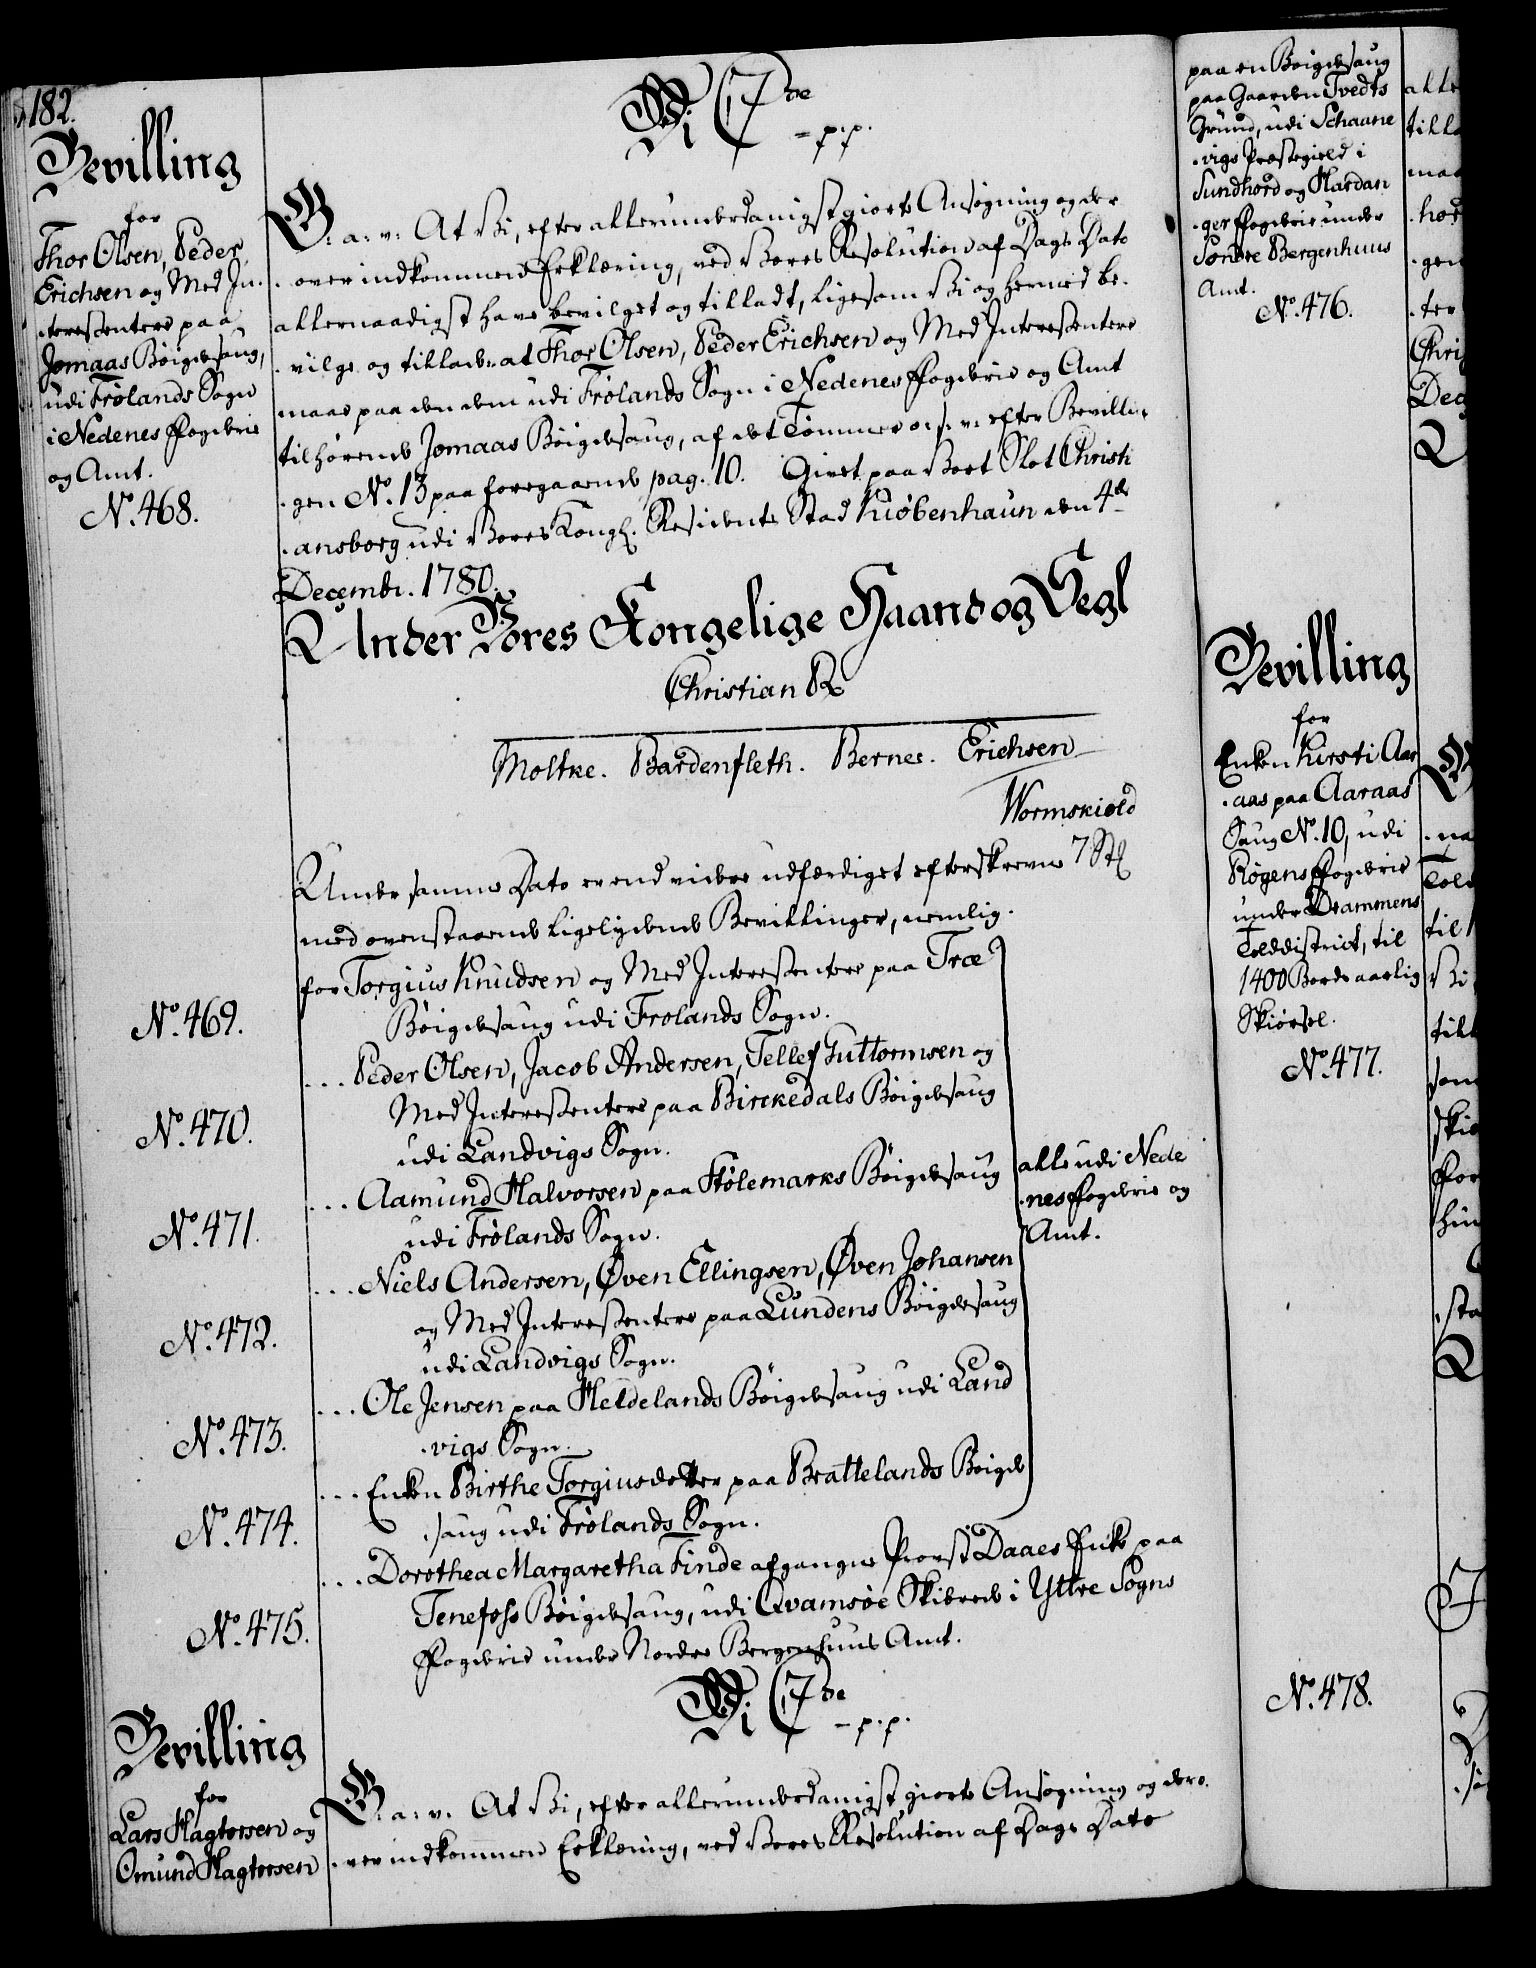 182.
Bevilling
for
Thor Olsen, Peder
Erichsen og Med In-
teressentere paa
Jomaas Bøigdesaug,
udi Frølands Sogn
i Nedenes Fogderie
og Amt.
No. 468.
Vi C 7de
- p. p.
G. a. v. At Vi, efter allerunderdanigst giorte Ansøgning og der
over indkommene Erklæring, ved Vores Resolution af Dags Dato
allernaadigst have bevilget og tilladt, ligesom Vi og hermed be-
vilge og tillade: at Thor Olsen, Peder Erichsen og Med Interessentere
maae paa den dem udi Frølands Sogn i Nedenes Fogderie og Amt
tilhørende Jomaas Bøigdesaug, af det Tømmer o. s. v. efter Bevillin-
gen No. 13 paa foregaaende pag. 10. Givet paa Vort Slot Christi
ansborg udi Vores Kongl. Residents Stad Kiøbenhaun den 4de
Decembr. 1780.
Under Vores Kongelige Haand og Segl
Christian R
Moltke. Bardenfleth. Berner. Erichsen
Wormskiold
Under samme Dato er end videre udfærdiget efterskrevne 7 St.
med ovenstaaende ligelydende Bevillinger, nemlig.
No. 469.
for Torgius Knudsen og Med Interessentere paa Træ
Bøigdesaug udi Frolands Sogn.
No. 470.
... Peder Olsen, Jacob Andersen, Tellef Guttormsen og
Med Interessentere paa Birckedals Bøigdesaug
udi Landvigs Sogn.
No. 471.
... Aamund Halvorsen paa Stølemarks Bøigdesaug
udi Frølands Sogn.
No. 472.
... Niels Andersen, Øven Ellingsen, Øven Johansen
og Med Interessentere paa Lundens Bøigdesaug
udi Landvigs Sogn.
No. 473.
... Ole Jensen paa Heldelands Bøigdesaug udi Land
vigs Sogn.
No. 474.
... Enken Birthe Torgiusdatter paa Brattelands Bøigde
saug udi Frølands Sogn.
alle udi Nede
nes Fogderie og
Amt.
No. 475.
... Dorothea Margaretha Finde afgangne Provst Daaes Enke paa
Tenefoss Bøigdesaug, udi Qvamsøe Skibrede i Yttre Sogns
Fogderie under Nordre Bergenhuus Amt.
Bevilling
for
Lars Hagtorsen og
Omund Hagtorsen
Vi C 7de
- p. p.
G. a. v. At Vi, efter allerunderdanigst giorte Ansøgning og dero-
ver indkommen Erklæring, ved Vores Resolution af Dags Dato
paa en Bøigdesaug
paa Gaarden Tvedts
Grund, udi Schaane
vigs Præstegield i
Sundhord og Hardan
ger Fogderie under
Søndre Bergenhuus
Amt.
No. 476.
Bevilling
for
Enken Kirsti Aar
aas paa Aaraas
Saug No. 10, udi
Røgens Fogderie
under Drammens
Tolddistrict, til
1400 Borde aarlig
Skiørsel.
No. 477.
No. 478.